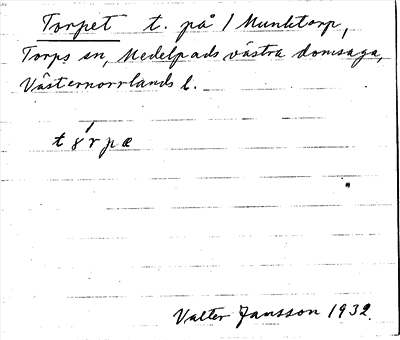 Torpet t. på 1 Munktorp,
Torps sn, Medelpads västra domsaga,
Västernorrlands l.
t ȣ́ r p æ
Valter Jansson 1932.